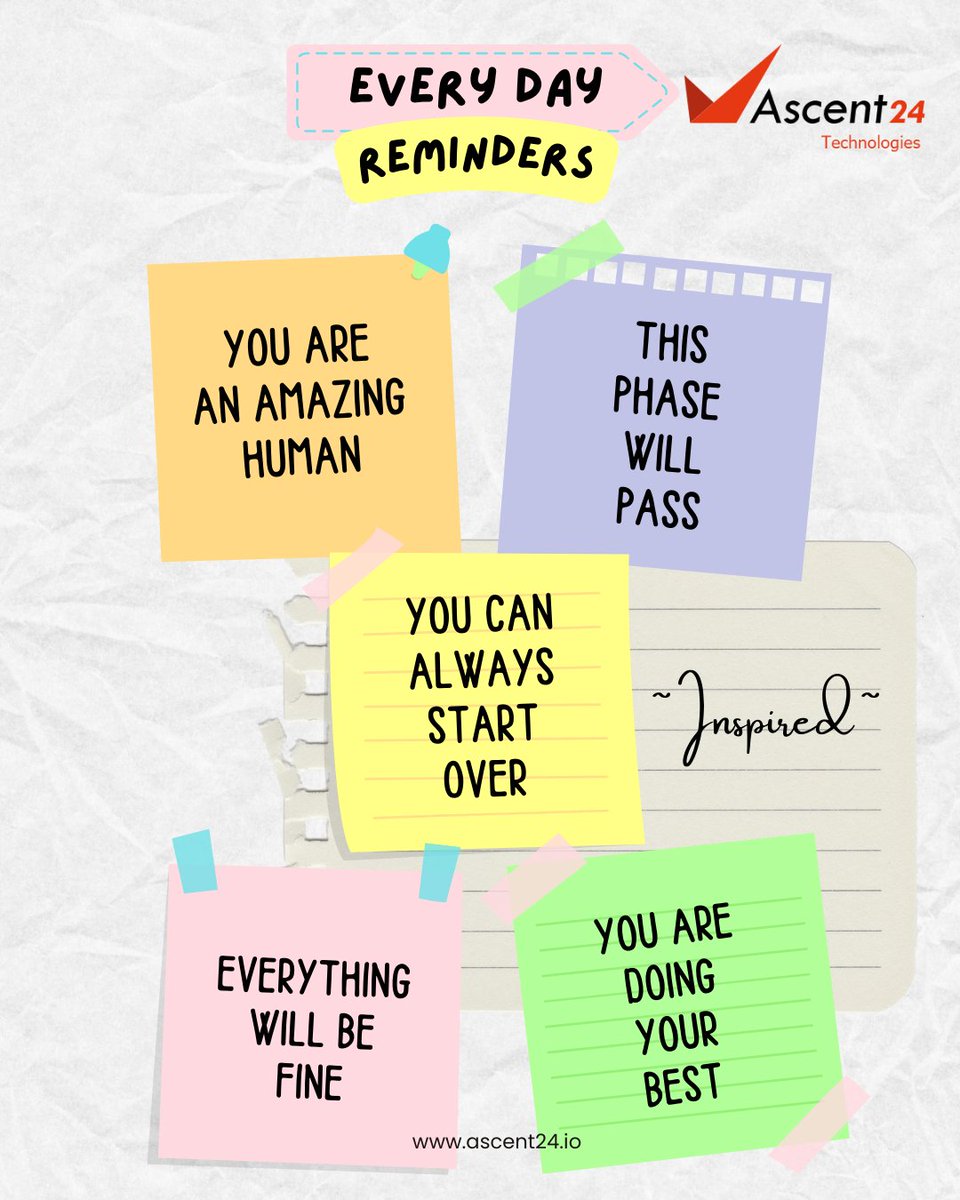 EVERY DAY
REMINDERS
Ascent24
Technologies
YOU ARE
AN AMAZING
HUMAN
THIS
PHASE
WILL
PASS
YOU CAN
ALWAYS
START
OVER
~Inspired~
EVERYTHING
WILL BE
FINE
YOU ARE
DOING
YOUR
BEST
www.ascent24.io